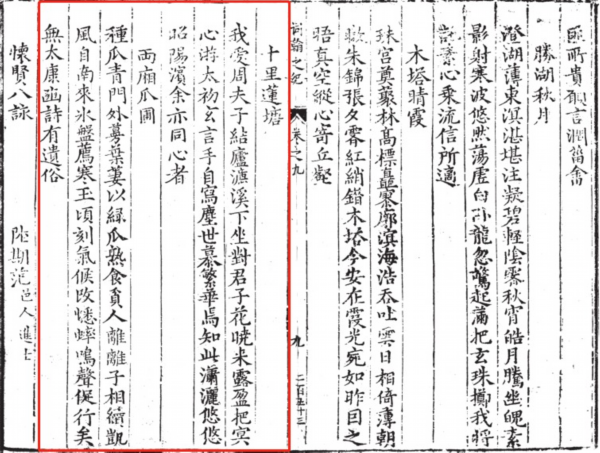 匪所貴願言潤菑畬
勝湖秋月
澄湖薄東溟湛堪注凝碧輕陰霽秋宵皓月騰坐魄素
影射寒波悠然蕩虛白卧龍忽驚起蒲把玄珠擲我將
託素心乘流信所適
木塔晴霞
珠宮奠叢林高標矗寥廓溟海浩吞吐雲日相倚薄朝
暾朱錦張夕霽紅綃錯木塔今安在霞光宛如昨因之
悟真空縱心寄丘壑
之紀 卷之九 九 二百五十三
十里蓮塘
我愛周夫子結廬濂溪下坐對君子花曉来露盈把冥
心游太初玄言手自寫塵世慕繁華焉知此瀟灑悠悠
昭陽濱余亦同心者
兩廂瓜圃
種瓜青門外蔓葉萋以綠瓜熟食貧人離離子相續凱
風自南来氷盤薦寒玉頃刻氣候改蟋蟀鳴聲促行矣
無太康豳詩有遺俗
懷賢八詠 陸期范邑人進士